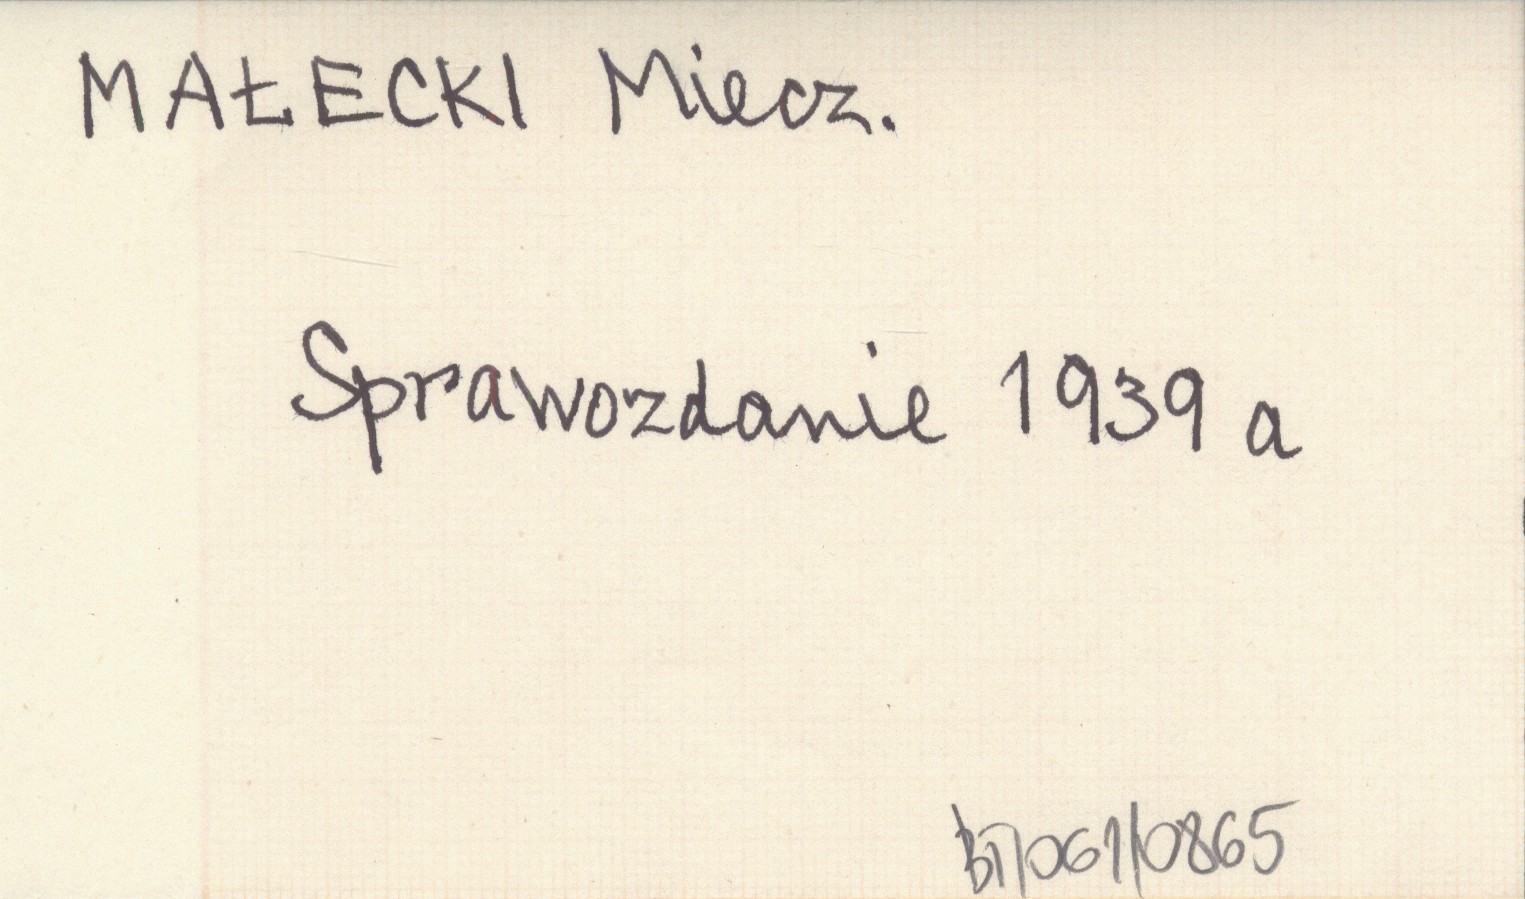 MAŁECKI Miecz.
Sprawozdanie 1939 a
BJ/061/0865